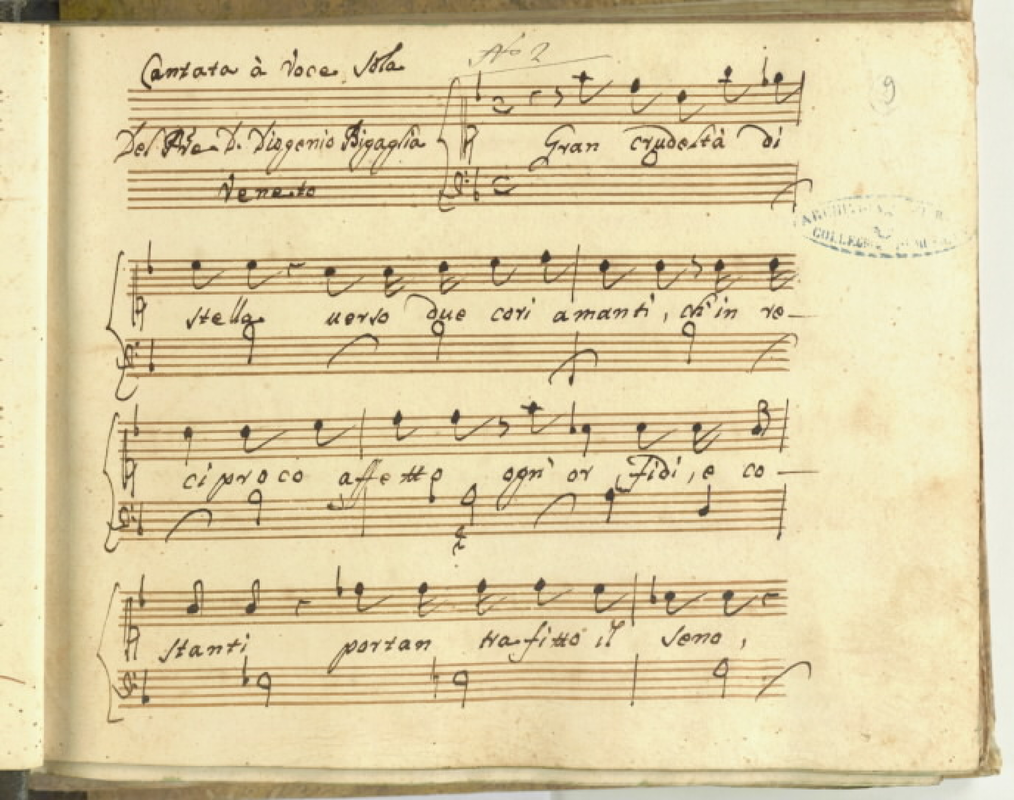 Cantata à Voce Sola
No 2
9
Del Pre D. Diogenio Bigaglia
Veneto
Gran crudeltà di
stella verso due cori amanti, ch'in re-
ciproco affetto ogn'or fidi, e co-
stanti portan trafitto il seno,
COLLEGII